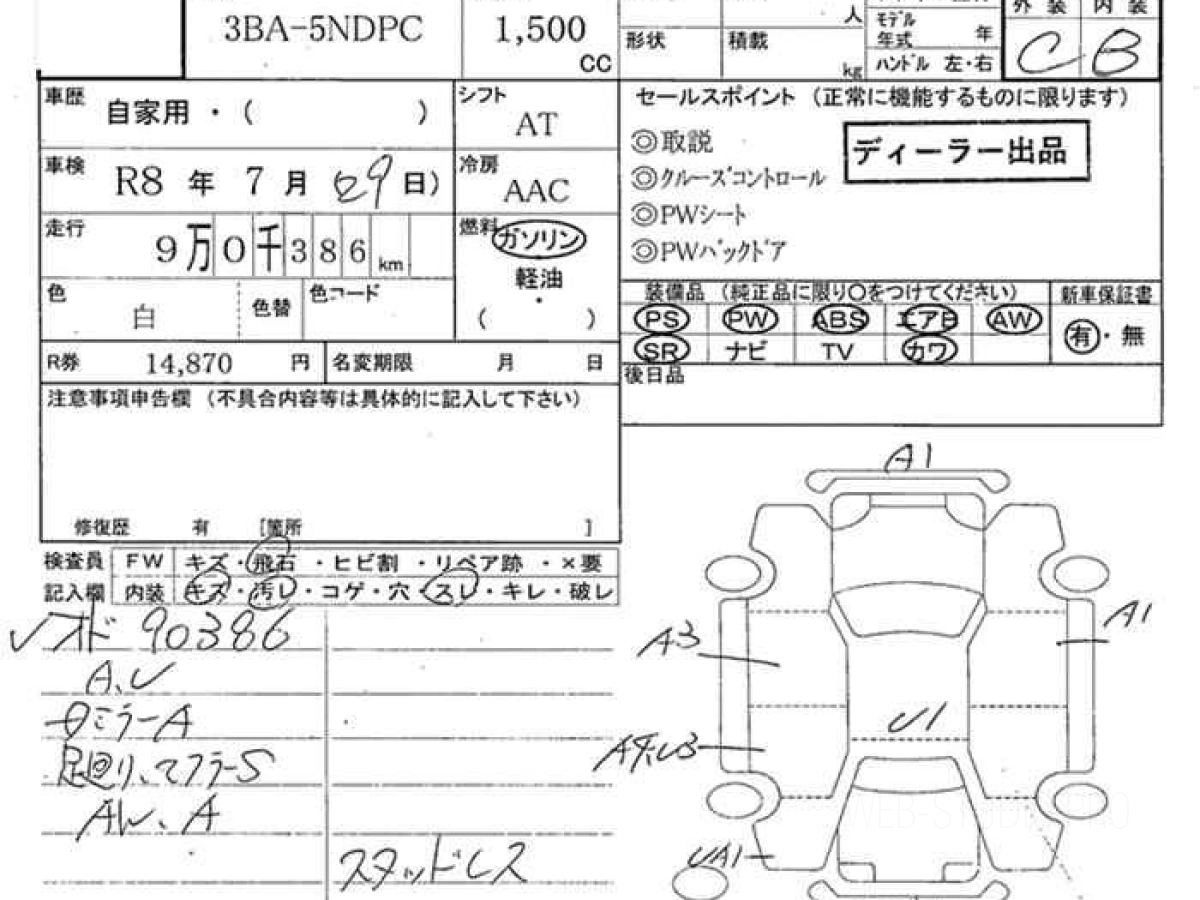 3BA-5NDPC
1,500
CC
人
形状
積載
kg
モデル
年式
年
ハンドル 左・右
外装
内装
C
B
車歴
自家用・( )
シフト
AT
車検
R8 年 7 月 29日)
冷房
AAC
走行
9万0千386km
燃料
ガソリン
軽油
・
( )
色
白
色替
色コード
R券
14,870 円
名変期限
月 日
注意事項申告欄 (不具合内容等は具体的に記入して下さい)
修復歴 有 [箇所 ]
セールスポイント (正常に機能するものに限ります)
◎取説
ディーラー出品
◎クルーズコントロール
◎PWシート
◎PWバックドア
装備品 (純正品に限り○をつけてください)
新車保証書
PS PW ABS エアB AW
SR ナビ TV カワ
有・無
後日品
検査員
記入欄
FW キズ・飛石・ヒビ割・リペア跡・×要
内装 キズ・汚レ・コゲ・穴・スレ・キレ・破レ
✓オド 90386
A、U
ミラーA
足回り、マフラーS
AW、A
スタッドレス
A1
A3
A1
U1
UA1